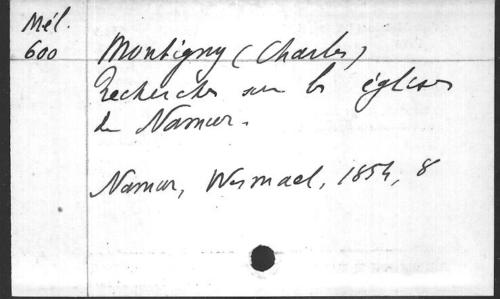 Mél.
600
Montigny (Charles)
Recherches sur les églises
de Namur.
Namur, Wesmael, 1854, 8